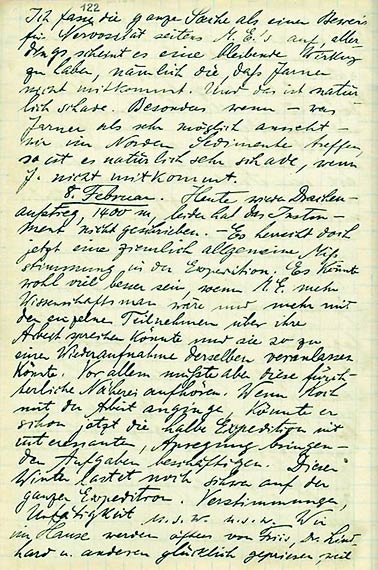 122
Ich fasse die ganze Sache als einen Beweis
für Nervosität seitens M. E.'s auf, aller
dings scheint es eine bleibende Wirkung
zu haben, nämlich die, daß Jarner
nicht mitkommt. Und das ist natür
lich schade. Besonders wenn – was
Jarner als sehr möglich ansieht –
wir im Norden Sedimente treffen,
so ist es natürlich sehr schade, wenn
J. nicht mitkommt.
8. Februar. Heute, wieder Drachen-
aufstieg, 1400 m, leider hat das Instru-
ment nicht geschrieben. – Es herrscht doch
jetzt eine ziemlich allgemeine Miß
stimmung in der Expedition. Es könnte
wohl viel besser sein, wenn M. E. mehr
Wissenschaftsman wäre und mehr mit
den einzelnen Teilnehmern über ihre
Arbeit sprechen könnte und sie so zu
einer Wiederaufnahme derselben veranlassen
könnte. Vor allem müßte aber diese fürch-
terliche Näherei aufhören. Wenn
mit der Arbeit anginge, könnte er
schon jetzt die halbe Expedition mit
interessanten, Anregung bringen-
den Aufgaben beschäftigen. Dieser
Winter lastet noch schwer auf der
ganzen Expedition. Verstimmungen,
Untätigkeit u.s.w. u.s.w. Wir
im Hause werden öfters von Friis, Dr. Lind
hard u. anderen glücklich gepriesen, weil